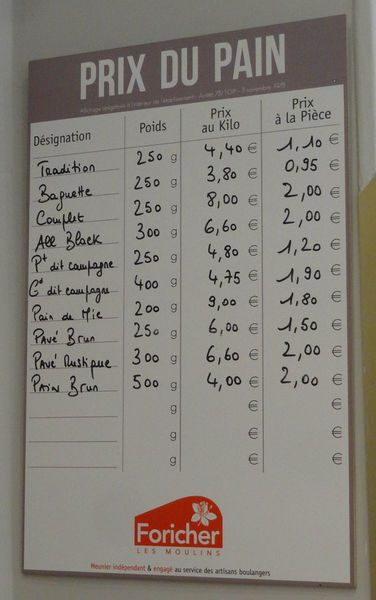 PRIX DU PAIN
Affichage obligatoire à l'intérieur de l'établissement - Arrêté 78/110P - 3 novembre 1978
Désignation Poids Prix au Kilo Prix à la Pièce
Tradition 250 g 4,40 € 1,10 €
Baguette 250 g 3,80 € 0,95 €
Complet 250 g 8,00 € 2,00 €
All Black 300 g 6,60 € 2,00 €
Pt dit campagne 250 g 4,80 € 1,20 €
Gd dit campagne 400 g 4,75 € 1,90 €
Pain de Mie 200 g 9,00 € 1,80 €
Pavé Brun 250 g 6,00 € 1,50 €
Pavé Rustique 300 g 6,60 € 2,00 €
Pain Brun 500 g 4,00 € 2,00 €
g € €
g € €
g € €
Foricher
LES MOULINS
Meunier indépendant & engagé au service des artisans boulangers